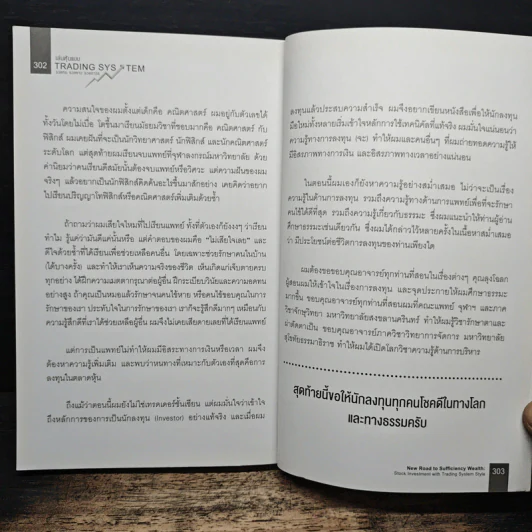 302
เล่นหุ้นแบบ
TRADING SYSTEM
ความสนใจของผมตั้งแต่เด็กคือ คณิตศาสตร์ ผมอยู่กับตัวเลขได้
ทั้งวันโดยไม่เบื่อ โตขึ้นมาเรียนมัธยมวิชาที่ชอบมากคือ คณิตศาสตร์ กับ
ฟิสิกส์ ผมเคยฝันที่จะเป็นนักวิทยาศาสตร์ นักฟิสิกส์ และนักคณิตศาสตร์
ระดับโลก แต่สุดท้ายผมเรียนจบแพทย์ที่จุฬาลงกรณ์มหาวิทยาลัย ด้วย
ค่านิยมว่าคนเรียนดีสมัยนั้นต้องจบแพทย์หรือวิศวะ แต่ความฝันของผม
จริงๆ แล้วอยากเป็นนักฟิสิกส์คิดค้นอะไรขึ้นมาสักอย่าง เคยคิดว่าอยาก
ไปเรียนปริญญาโทฟิสิกส์หรือคณิตศาสตร์เพิ่มเติมด้วยซ้ำ
ถ้าถามว่าผมเสียใจไหมที่ไปเรียนแพทย์ ทั้งที่ตัวเองก็ยังงงๆ ว่าเรียน
ทำไม รู้แค่ว่ามันดีแค่นั้นหรือ แต่คำตอบของผมคือ "ไม่เสียใจเลย" และ
ดีใจด้วยซ้ำที่ได้เรียนเพื่อช่วยเหลือคนอื่น โดยเฉพาะช่วยรักษาคนในบ้าน
(ได้บางครั้ง) และทำให้เราเห็นความจริงของชีวิต เห็นเกิดแก่เจ็บตายครบ
ทุกอย่าง ได้ฝึกความเมตตากรุณาต่อผู้อื่น ฝึกระเบียบวินัยและความอดทน
อย่างสูง ถ้าคุณเป็นหมอแล้วรักษาจนคนไข้หาย หรือคนไข้ขอบคุณในการ
รักษาของเรา ประทับใจในการรักษาของเรา เราก็จะรู้สึกดีมากๆ เหมือนกับ
ความรู้สึกดีที่เราได้ช่วยเหลือผู้อื่น ผมจึงไม่เคยเสียดายเลยที่ได้เรียนแพทย์
แต่การเป็นแพทย์ไม่ทำให้ผมมีอิสระทางการเงินหรือเวลา ผมจึง
ต้องหาความรู้เพิ่มเติม และพบว่าหนทางที่เหมาะกับตัวเองที่สุดคือการ
ลงทุนในตลาดหุ้น
ถึงแม้ว่าตอนนี้ผมยังไม่ใช่เทรดเดอร์ชั้นเซียน แต่ผมมั่นใจว่าเข้าใจ
ถึงหลักการของการเป็นนักลงทุน (Investor) อย่างแท้จริง และเมื่อผม
ลงทุนแล้วประสบความสำเร็จ ผมจึงอยากเขียนหนังสือเพื่อให้นักลงทุน
มือใหม่ทั้งหลายเริ่มเข้าใจหลักการใช้เทคนิคัลที่แท้จริง ผมมั่นใจแน่นอนว่า
ความรู้ทางการลงทุน (จะ) ทำให้ผมและคนอื่นๆ ที่ผมถ่ายทอดความรู้ให้
มีอิสรภาพทางการเงิน และอิสรภาพทางเวลาอย่างแน่นอน
ในตอนนี้ผมเองก็ยังหาความรู้อย่างสม่ำเสมอ ไม่ว่าจะเป็นเรื่อง
ความรู้ในด้านการลงทุน รวมถึงความรู้ทางด้านการแพทย์เพื่อที่จะรักษา
คนไข้ได้ดีที่สุด รวมถึงความรู้เกี่ยวกับธรรมะ ซึ่งผมแนะนำให้ท่านผู้อ่าน
ศึกษาธรรมะเช่นเดียวกัน ซึ่งผมได้กล่าวไว้หลายครั้งในเนื้อหาสม่ำเสมอ
ว่า มีประโยชน์ต่อชีวิตการลงทุนของท่านเพียงใด
ผมต้องขอขอบคุณอาจารย์ทุกท่านที่สอนในเรื่องต่างๆ คุณลุงโฉลก
ผู้สอนผมให้เข้าใจในเรื่องการลงทุน และจุดประกายให้ผมศึกษาธรรมะ
มากขึ้น ขอบคุณอาจารย์ทุกท่านที่สอนผมที่คณะแพทย์ จุฬาฯ และภาค
วิชาจักษุวิทยา มหาวิทยาลัยสงขลานครินทร์ ทำให้ผมรู้วิชารักษาตาและ
ผ่าตัดตาเป็น ขอบคุณอาจารย์ภาควิชาวิทยาการจัดการ มหาวิทยาลัย
สุโขทัยธรรมาธิราช ทำให้ผมได้เปิดโลกวิชาความรู้ด้านการบริหาร
สุดท้ายนี้ขอให้นักลงทุนทุกคนโชคดีในทางโลก
และทางธรรมครับ
New Road to Sufficiency Wealth:
Stock Investment with Trading System Style
303